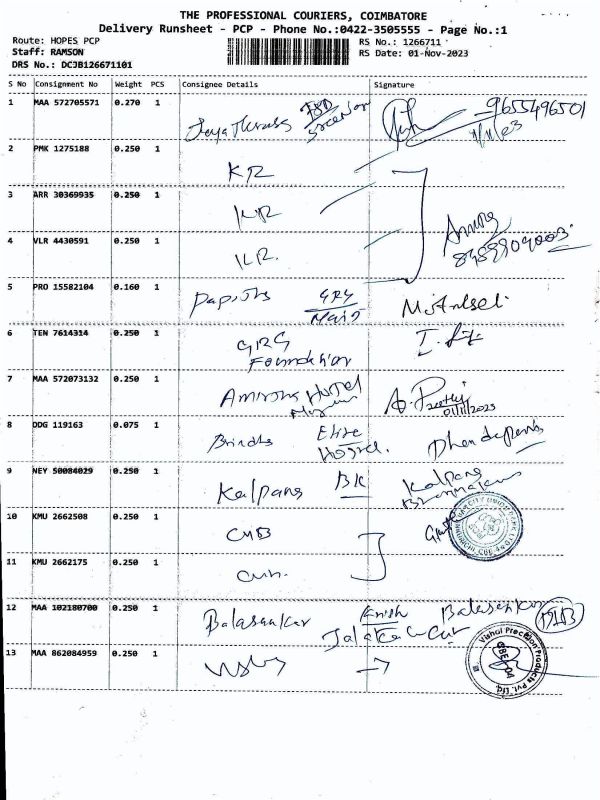 THE PROFESSIONAL COURIERS, COIMBATORE
Delivery Runsheet - PCP - Phone No.:0422-3505555 - Page No.:1
Route: HOPES PCP
RS No.: 1266711
Staff: RAMSON
RS Date: 01-Nov-2023
DRS No.: DCJB126671101
S No Consignment No Weight PCS Consignee Details Signature
1 MAA 572705571 0.270 1 9655496501
2 PMK 1275188 0.250 1 KR
3 ARR 30369935 0.250 1 KR
4 VLR 4430591 0.250 1 KR.
5 PRO 15582104 0.160 1
6 TEN 7614314 0.250 1 GRG
Foundation
7 MAA 572073132 0.250 1 Hostel
01/11/2023
8 ODG 119163 0.075 1 Brindha Elite
Hostel.
9 NEY 50084029 0.250 1 Kalpana BK Kalpana
10 KMU 2662508 0.250 1 CUB
11 KMU 2662175 0.250 1 Cub.
12 MAA 102180700 0.250 1 Balasankar Balasankar
13 MAA 862084959 0.250 1
Vishal Precision Products Pvt. Ltd.